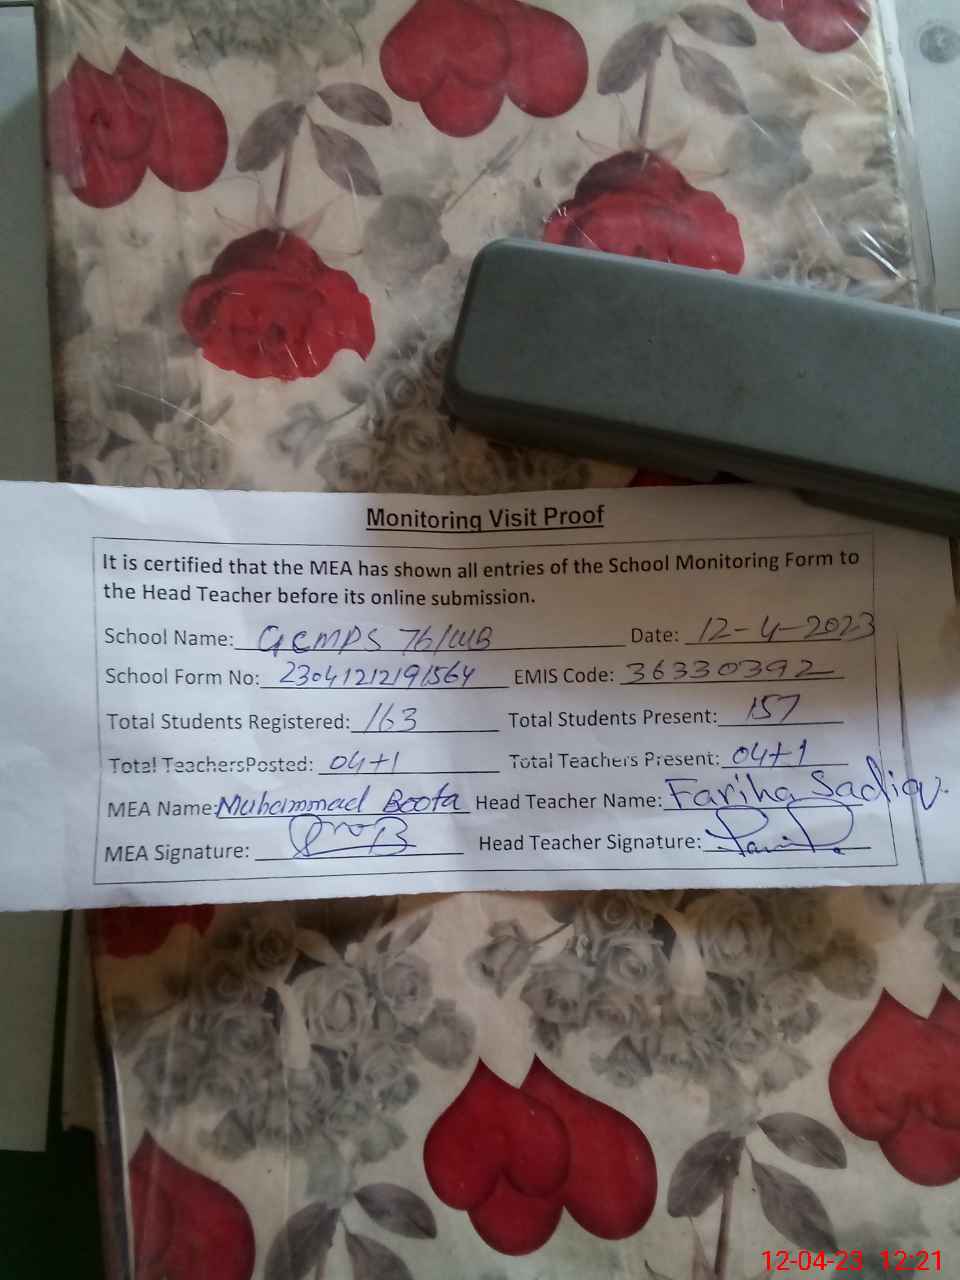 Monitoring Visit Proof
It is certified that the MEA has shown all entries of the School Monitoring Form to
the Head Teacher before its online submission.
School Name: GCMPS 76/WB Date: 12-4-2023
School Form No: 23041212191564 EMIS Code: 36330392
Total Students Registered: 163 Total Students Present: 157
Total TeachersPosted: 04+1 Total Teachers Present: 04+1
MEA Name: Muhammad Boota Head Teacher Name: Fariha Sadiq.
MEA Signature: Head Teacher Signature:
12-04-23 12:21